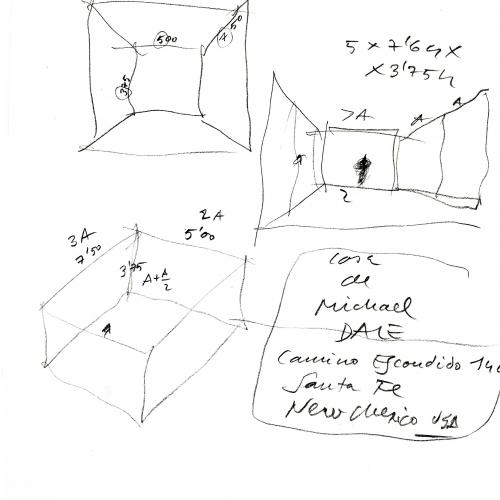 500
A 50
375
5 x 7'64 x
x 3'75 h
>A
A
A
A
2
3A
7'50
2A
5'00
3'75
A + A/2
A
Casa
de
Michael
DALE
Camino Escondido
Santa Fe
New Mexico USA